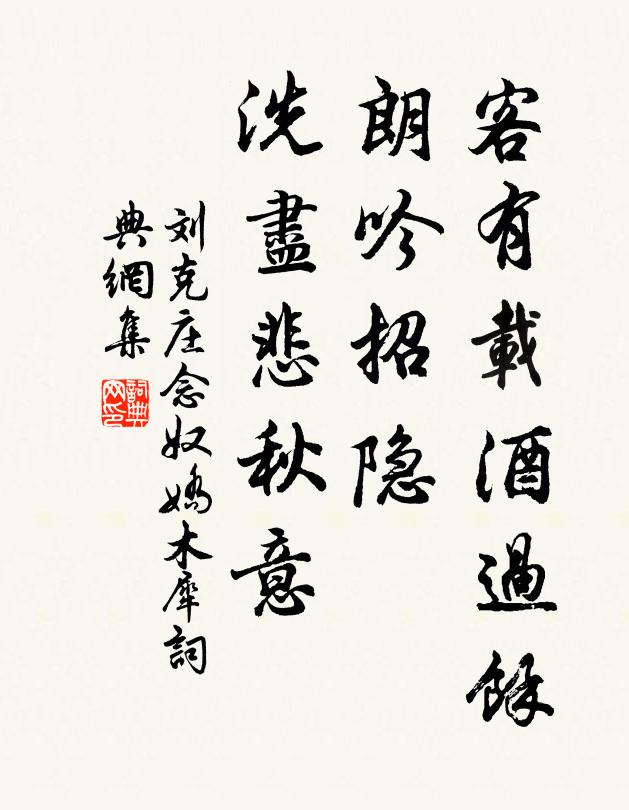 客有載酒過餘
朗吟招隐
洗盡悲秋意
刘克庄念奴嬌木犀詞
典網集
詞典网印